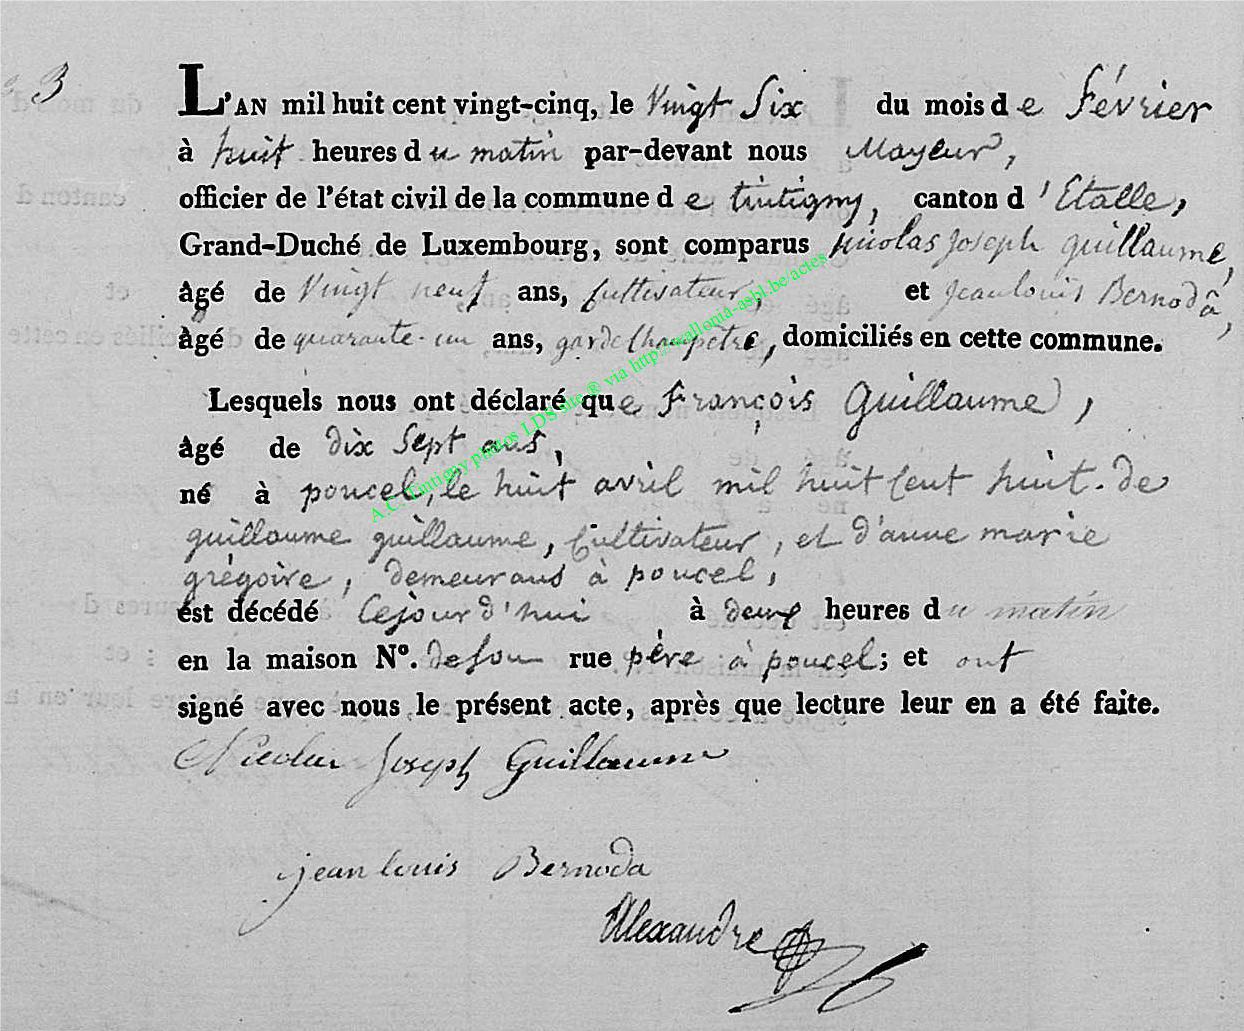 3
L'AN mil huit cent vingt-cinq, le Vingt Six du mois de Février
à huit heures du matin par-devant nous Mayeur,
officier de l'état civil de la commune de tintigny, canton d'Etalle,
Grand-Duché de Luxembourg, sont comparus nicolas Joseph guillaume,
âgé de Vingt neuf ans, Cultivateur, et Jean louis Bernodâ,
âgé de quarante-un ans, garde Champêtre, domiciliés en cette commune.
Lesquels nous ont déclaré que François Guillaume,
âgé de dix Sept ans,
né à poucel, le huit avril mil huit Cent huit. de
guillaume guillaume, Cultivateur, et d'anne marie
grégoire, demeurans à poucel,
est décédé Cejourd'hui à deux heures du matin
en la maison Nº. de son rue père à poucel; et ont
signé avec nous le présent acte, après que lecture leur en a été faite.
Nicolas Joseph Guillaume
jean louis Bernoda
Alexandre
A.C. Tintigny photos LDS site ® via http://wallonia-asbl.be/actes